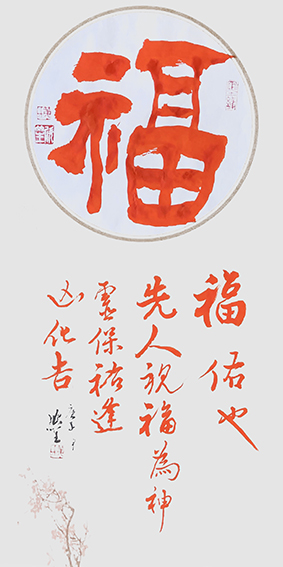 福
福佑也
先人視福為神
靈保祐逢
凶化吉